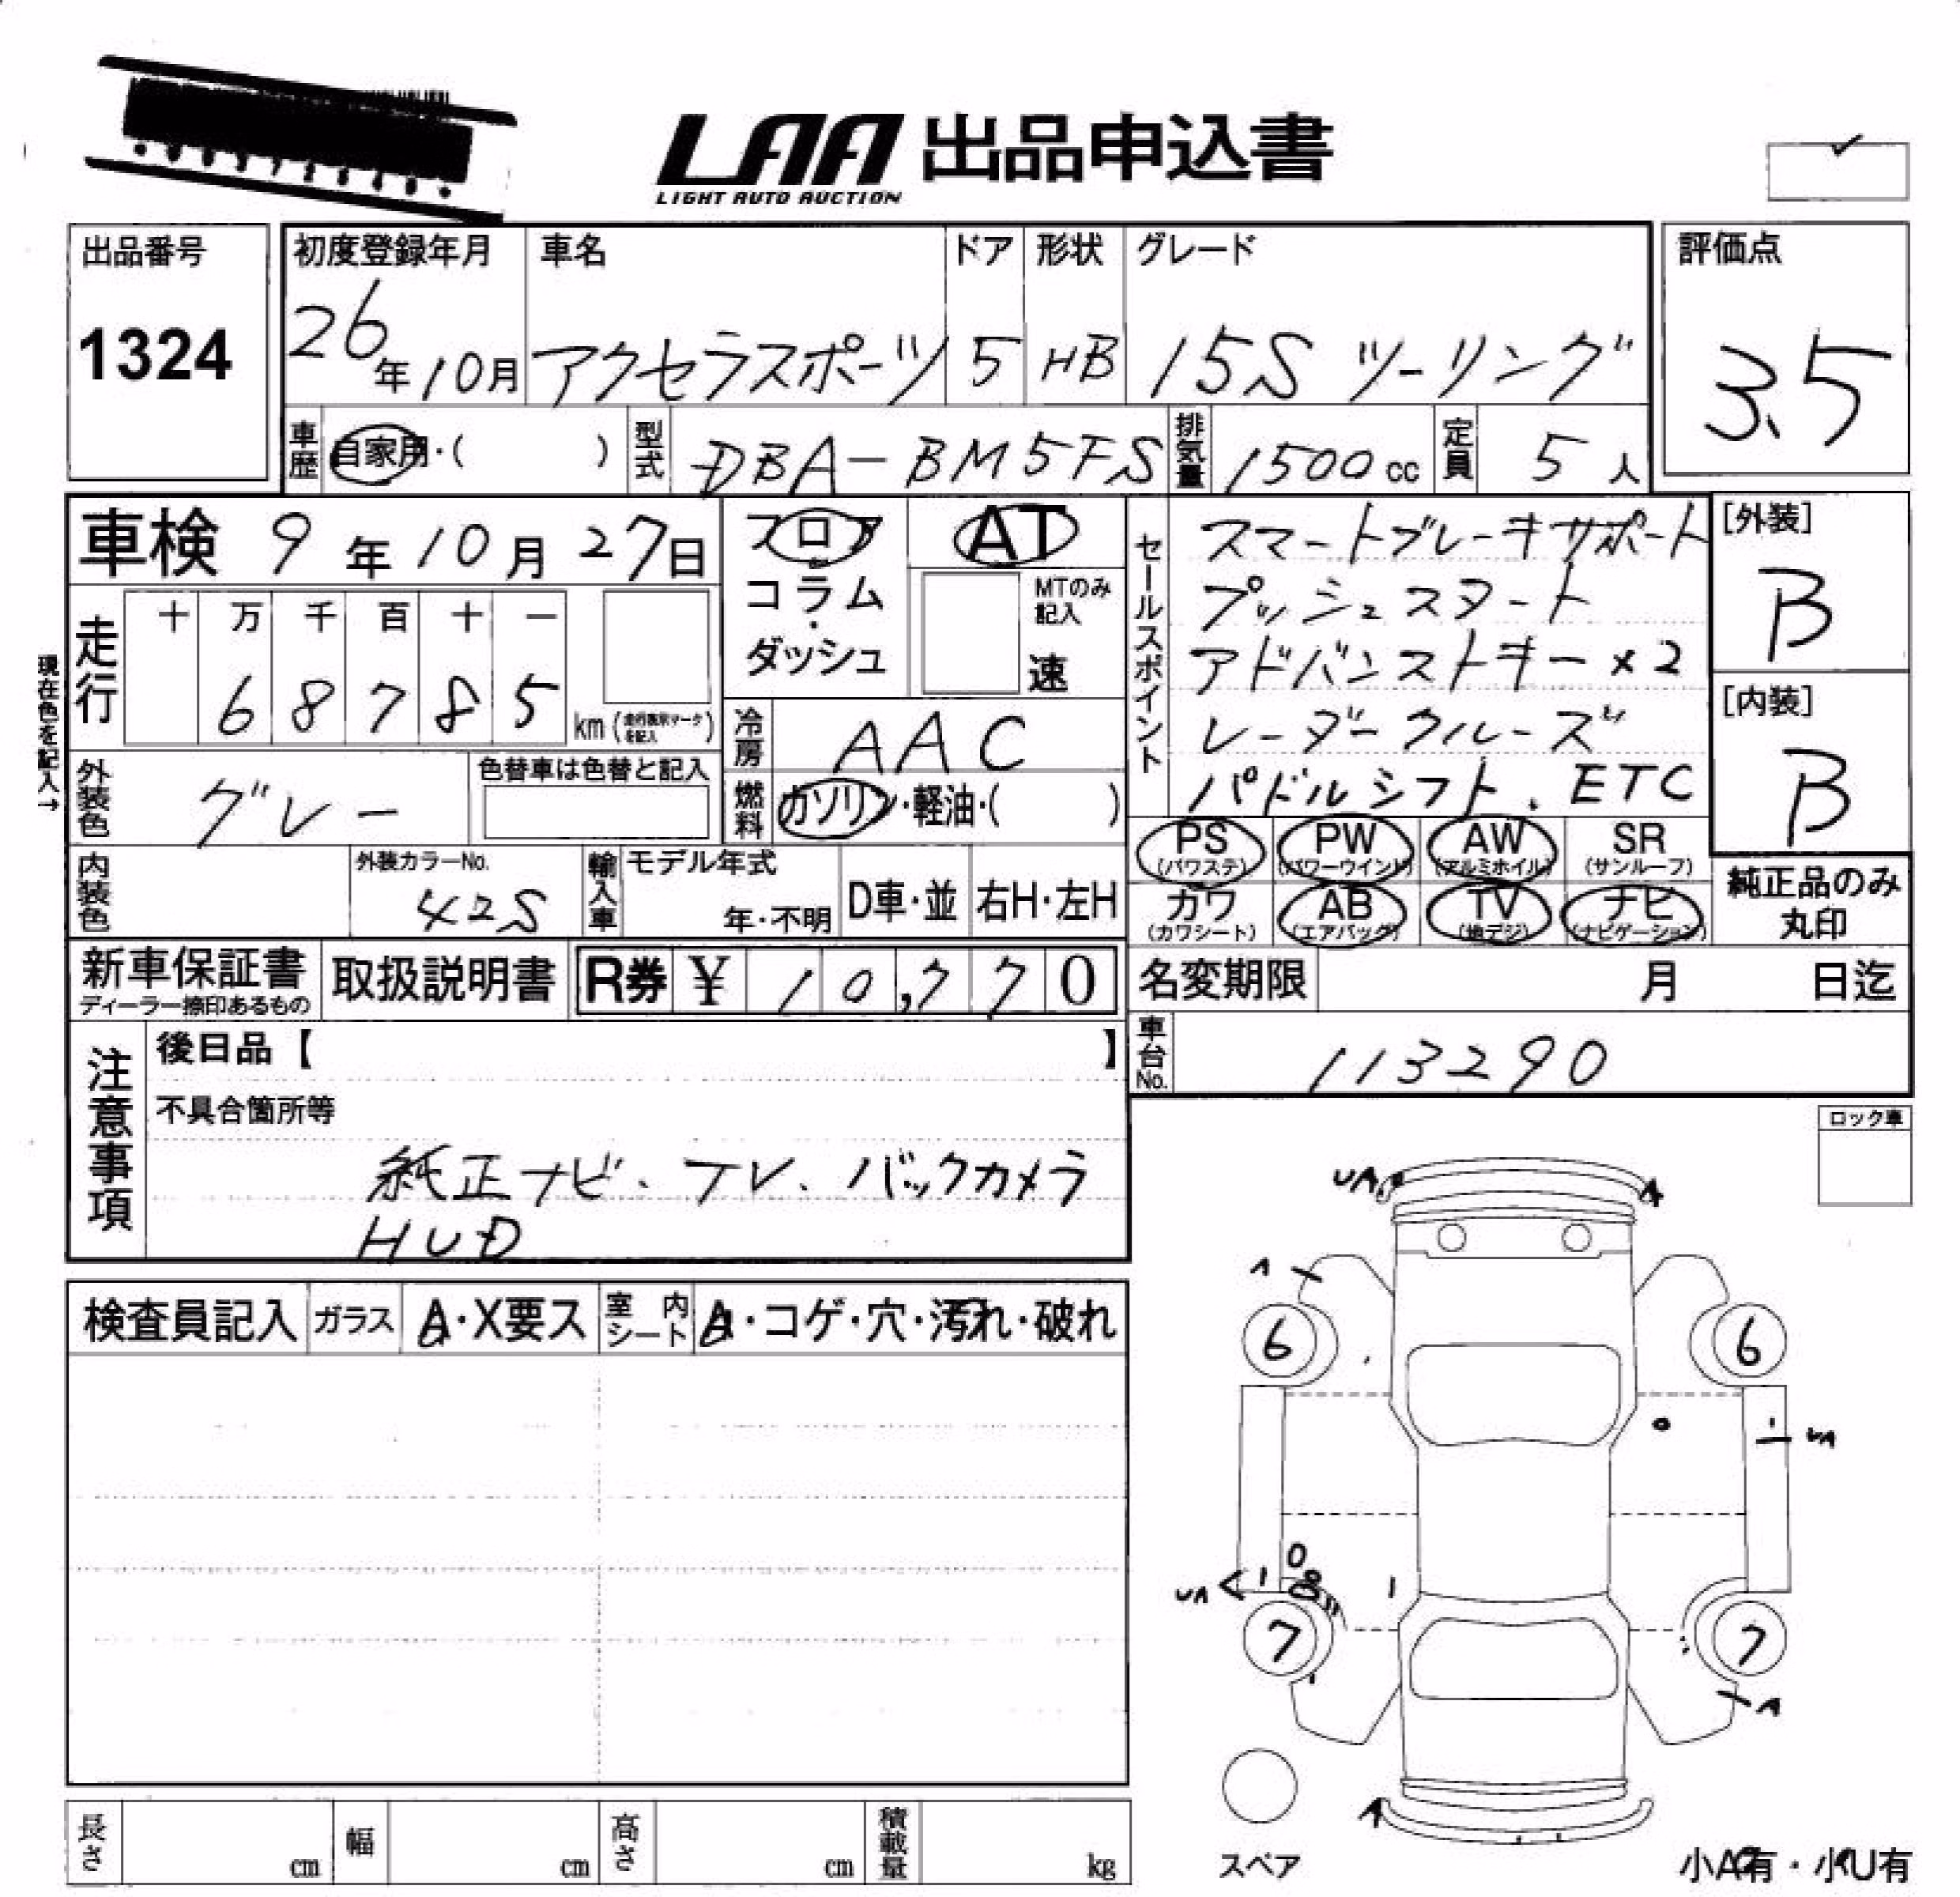 LAA 出品申込書
LIGHT AUTO AUCTION
出品番号
1324
初度登録年月
26年10月
車名
アクセラスポーツ
ドア
5
形状
HB
グレード
15S ツーリング
評価点
3.5
車歴
自家用・( )
型式
DBA-BM5FS
排気量
1500cc
定員
5人
車検 9年10月27日
フロア・コラム・ダッシュ
AT
MTのみ記入
速
走行
十 万 千 百 十 一
6 8 7 8 5
km (走行表示マークを記入)
現在色を記入→
外装色
グレー
色替車は色替と記入
冷房
AAC
燃料
ガソリン・軽油・( )
内装色
外装カラーNo.
42S
輸入車
モデル年式
年・不明
D車・並
右H・左H
セールスポイント
スマートブレーキサポート
プッシュスタート
アドバンストキー×2
レーダークルーズ
パドルシフト、ETC
[外装]
B
[内装]
B
PS (パワステ)
PW (パワーウインド)
AW (アルミホイル)
SR (サンルーフ)
カワ (カワシート)
AB (エアバッグ)
TV (地デジ)
ナビ (ナビゲーション)
純正品のみ丸印
新車保証書
ディーラー捺印あるもの
取扱説明書
R券 ¥ 10,770
名変期限 月 日迄
車台No.
113290
注意事項
後日品【 】
不具合箇所等
純正ナビ、テレ、バックカメラ
HUD
ロック車
検査員記入
ガラス
A・X要ス
室内シート
A・コゲ・穴・汚れ・破れ
UA
A
A
6
6
UA
UA
7
7
A
A
スペア
長さ cm
幅 cm
高さ cm
積載量 kg
小A有・小U有